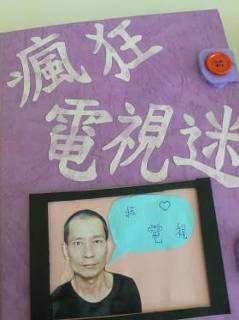 瘋狂
電視迷
我 ♡
電視